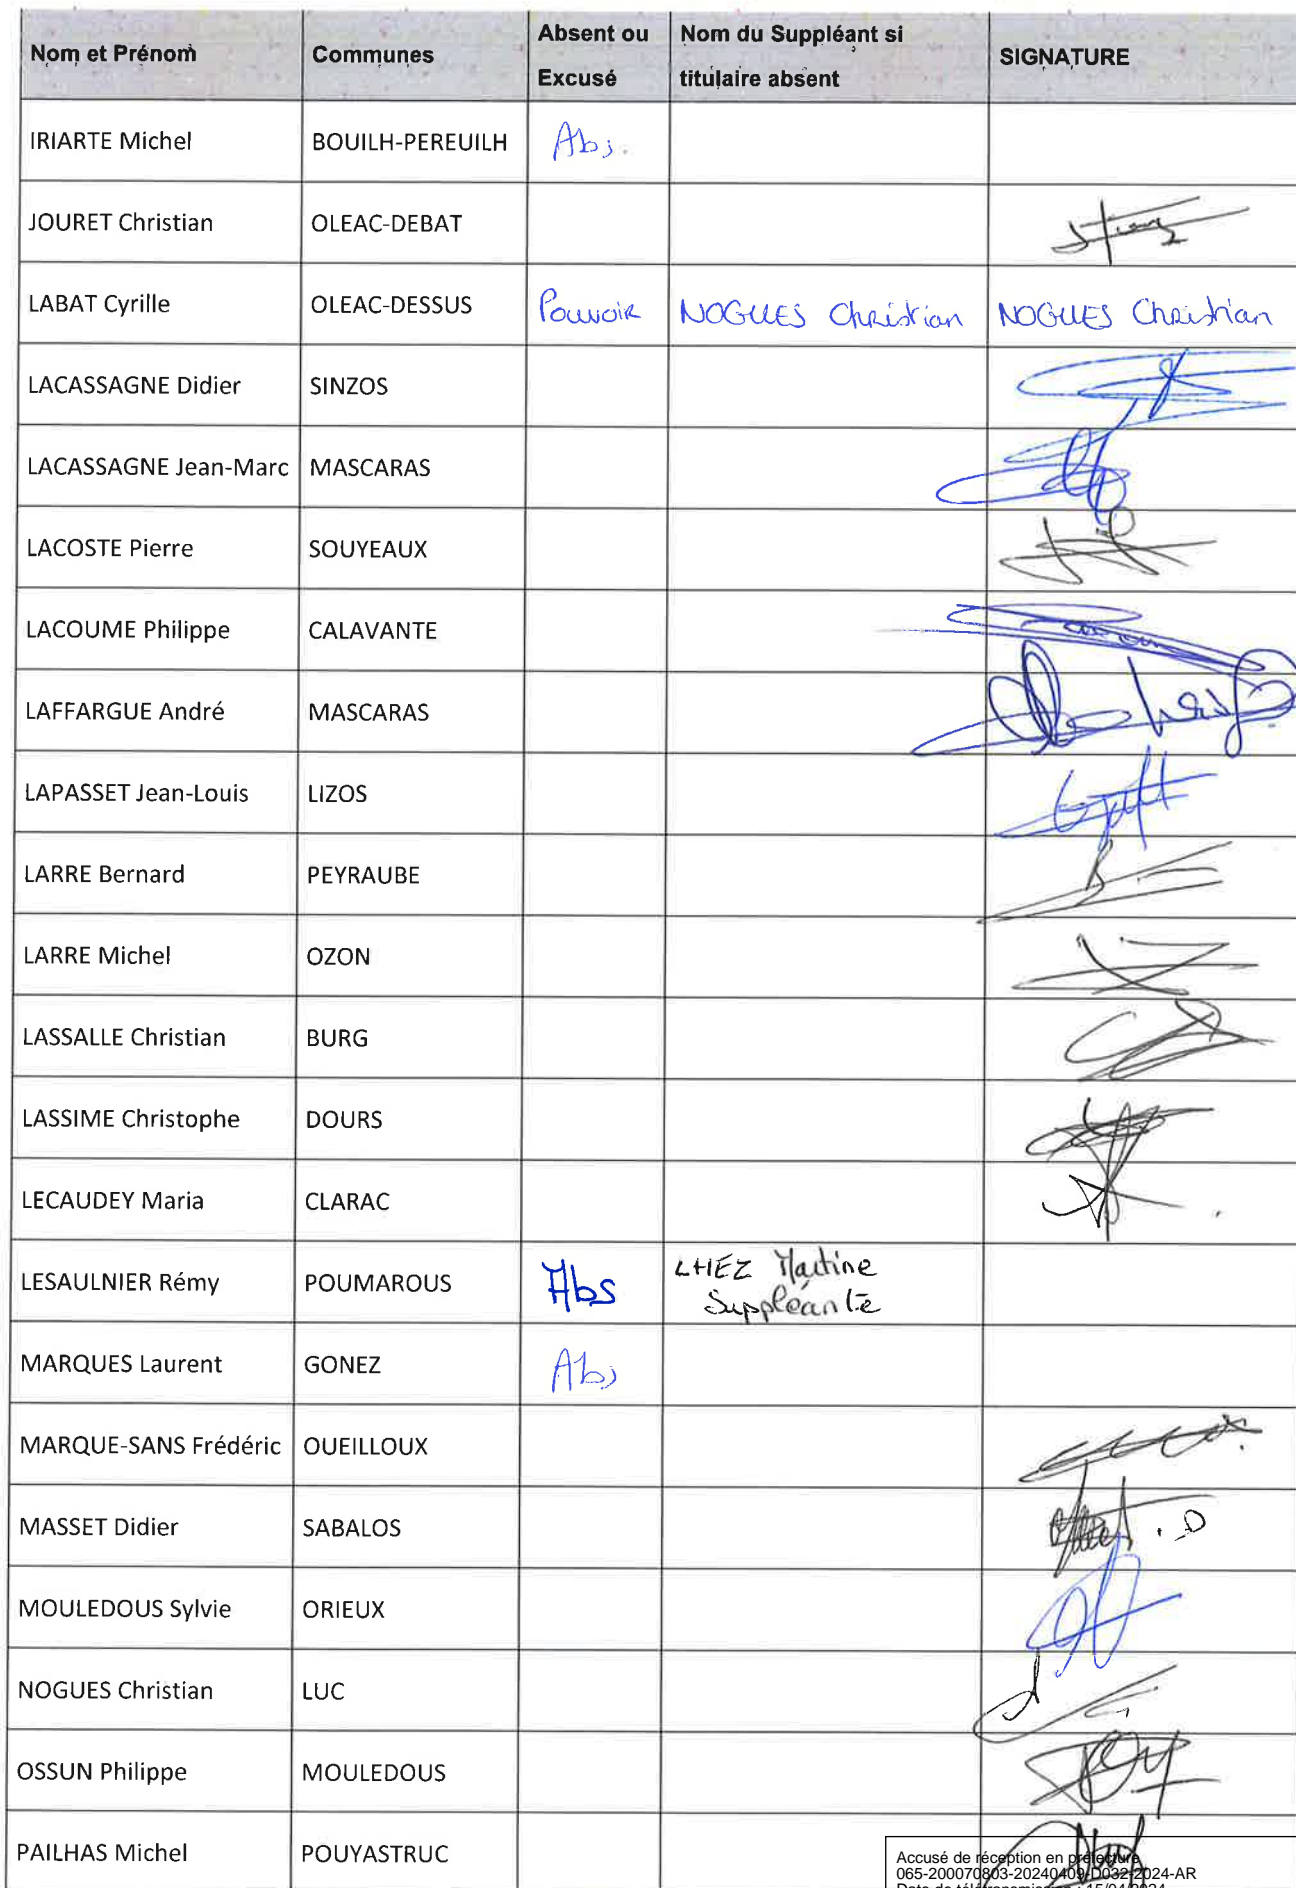 Nom et Prénom Communes Absent ou Excusé Nom du Suppléant si titulaire absent SIGNATURE
IRIARTE Michel BOUILH-PEREUILH Abs.
JOURET Christian OLEAC-DEBAT
LABAT Cyrille OLEAC-DESSUS Pouvoir NOGUES Christian NOGUES Christian
LACASSAGNE Didier SINZOS
LACASSAGNE Jean-Marc MASCARAS
LACOSTE Pierre SOUYEAUX
LACOUME Philippe CALAVANTE
LAFFARGUE André MASCARAS
LAPASSET Jean-Louis LIZOS
LARRE Bernard PEYRAUBE
LARRE Michel OZON
LASSALLE Christian BURG
LASSIME Christophe DOURS
LECAUDEY Maria CLARAC
LESAULNIER Rémy POUMAROUS Abs LHEZ Martine Suppléante
MARQUES Laurent GONEZ Abs
MARQUE-SANS Frédéric OUEILLOUX
MASSET Didier SABALOS
MOULEDOUS Sylvie ORIEUX
NOGUES Christian LUC
OSSUN Philippe MOULEDOUS
PAILHAS Michel POUYASTRUC
Accusé de réception en préfecture
065-200070803-20240409-D032-2024-AR
Date de télétransmission : 15/04/2024